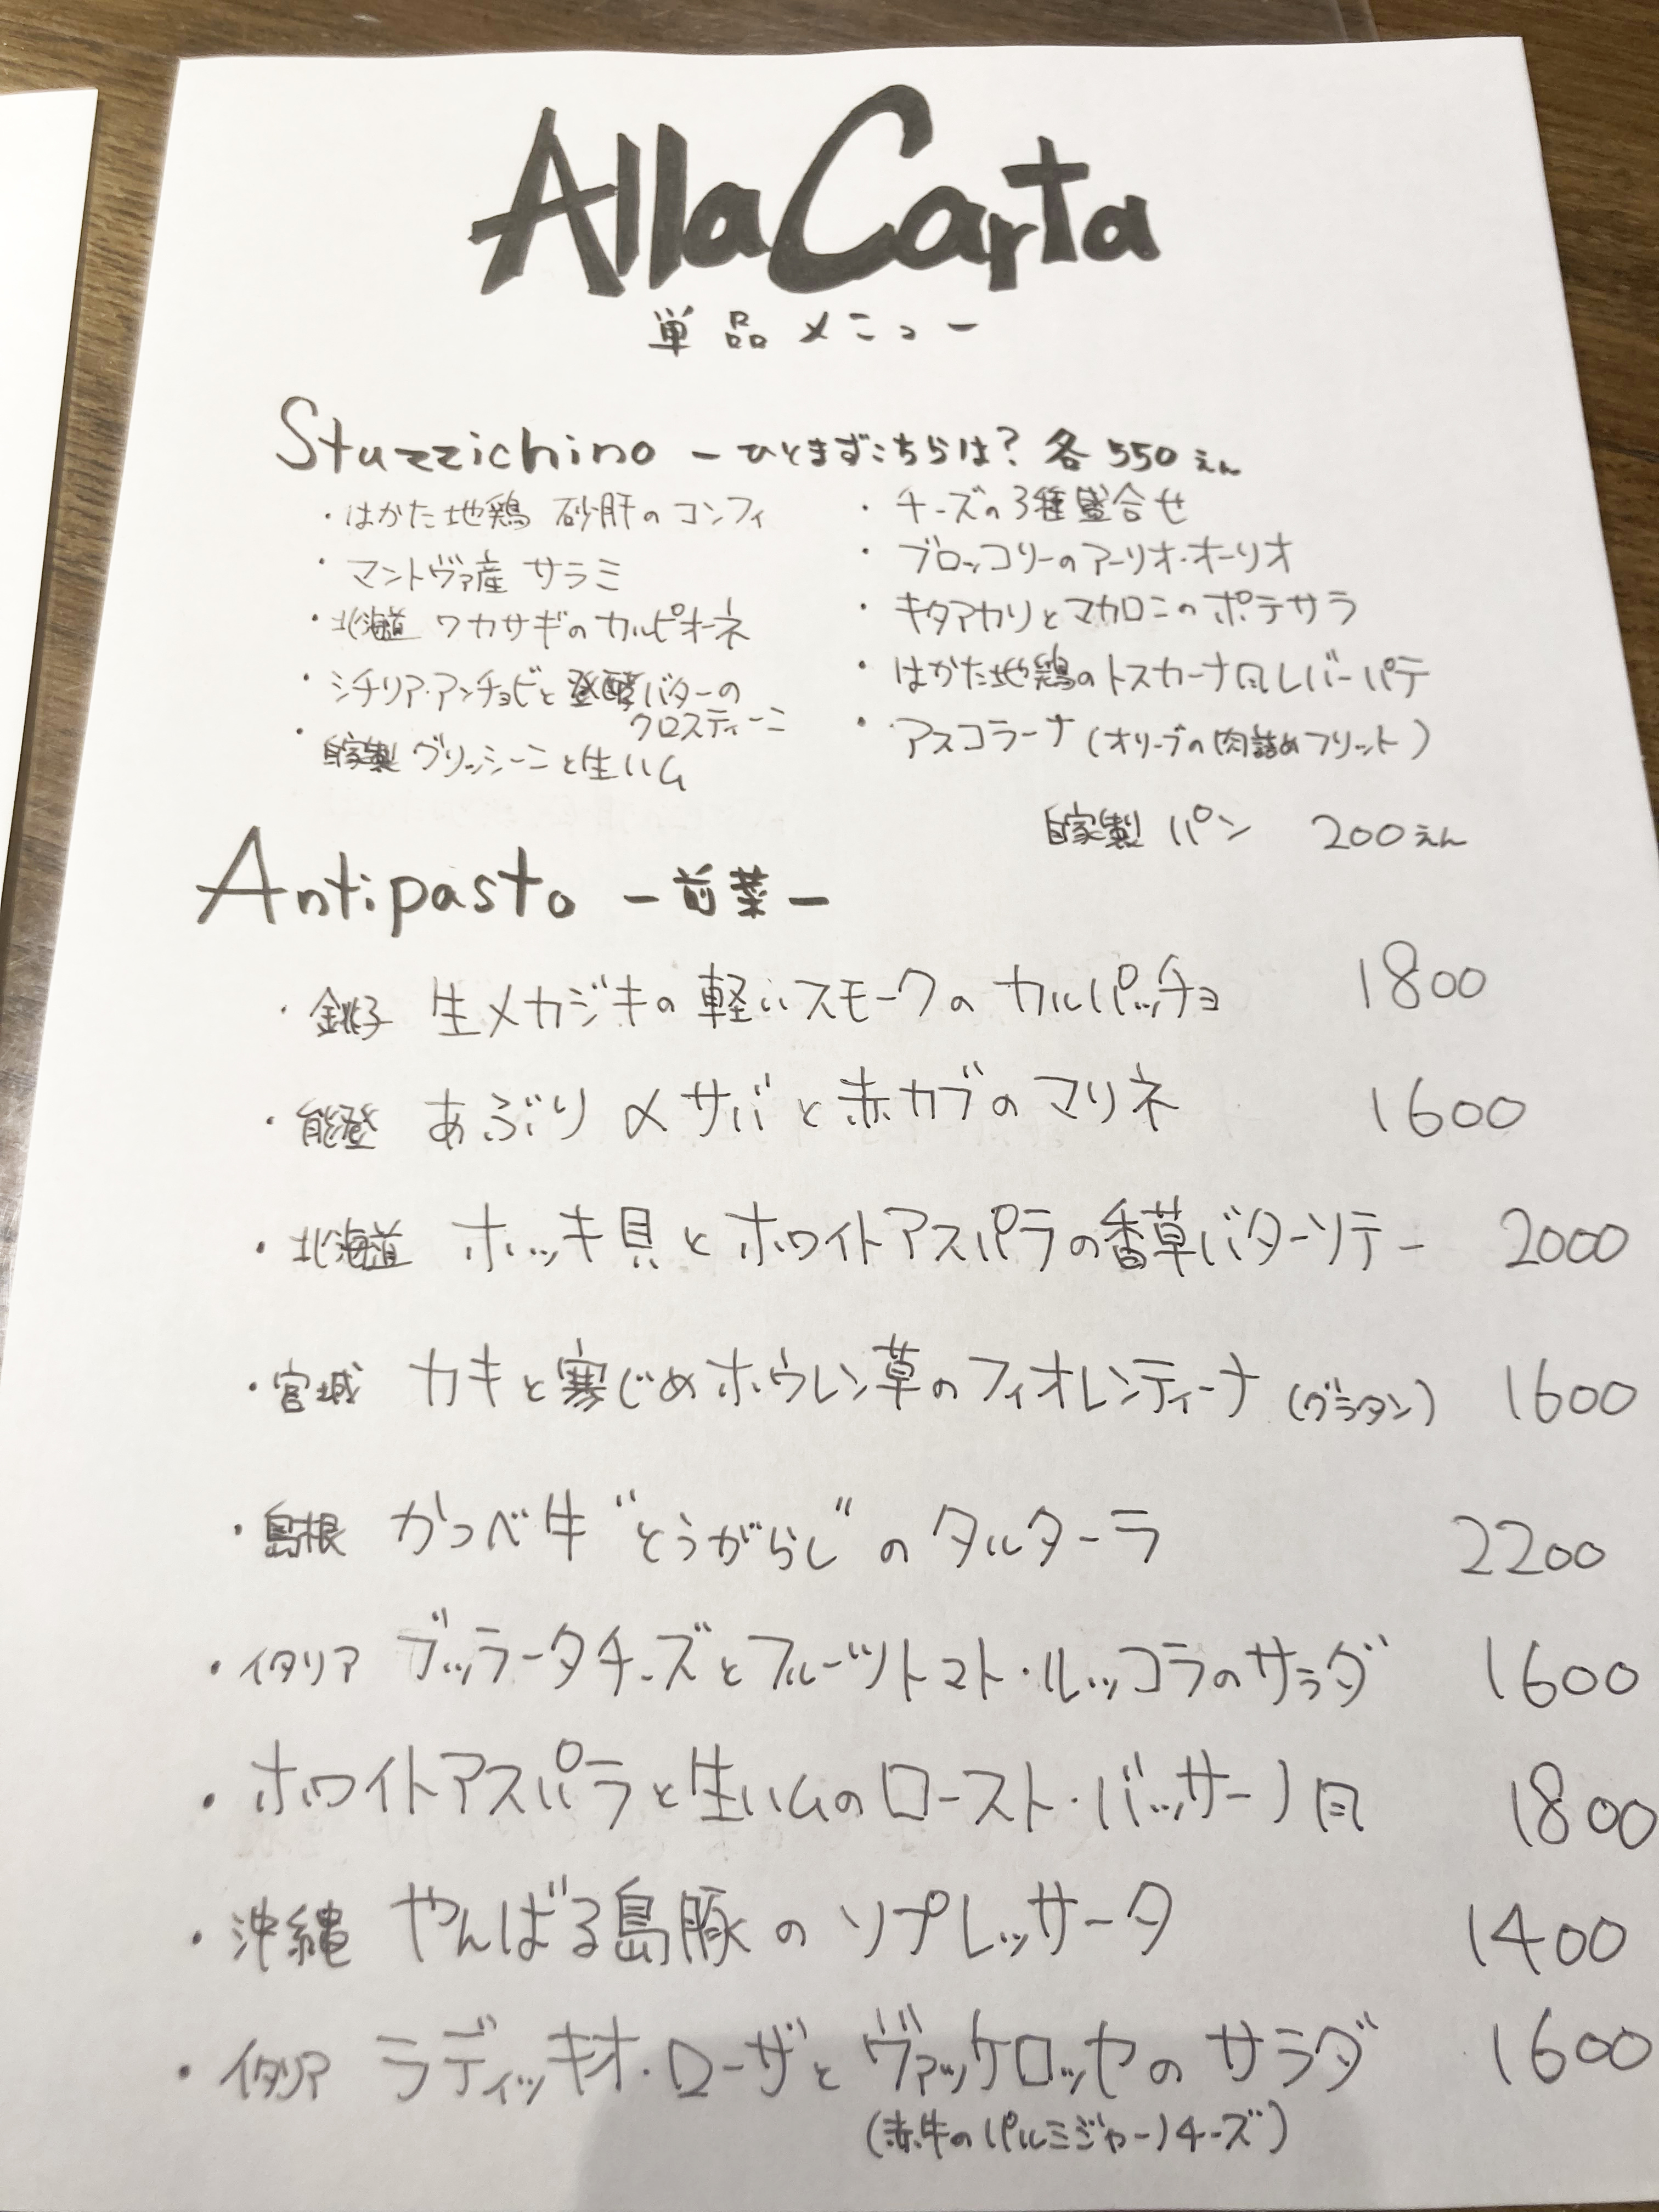 Alla Carta
単品メニュー
Stuzzichino ーひとまずこちらは? 各550えん
・はかた地鶏 砂肝のコンフィ
・マントヴァ産 サラミ
・北海道 ワカサギのカルピオーネ
・シチリア・アンチョビと発酵バターの
クロスティーニ
・自家製 グリッシーニと生ハム
・チーズの3種盛合せ
・ブロッコリーのアーリオ・オーリオ
・キタアカリとマカロニのポテサラ
・はかた地鶏のトスカーナ風レバーパテ
・アスコラーナ(オリーブの肉詰めフリット)
自家製 パン 200えん
Antipasto ー前菜ー
・銚子 生メカジキの軽いスモークのカルパッチョ 1800
・能登 あぶり〆サバと赤カブのマリネ 1600
・北海道 ホッキ貝とホワイトアスパラの香草バターソテー 2000
・宮城 カキと寒じめホウレン草のフィオレンティーナ(グラタン) 1600
・島根 かつべ牛"とうがらし"のタルターラ 2200
・イタリア ブッラータチーズとフルーツトマト・ルッコラのサラダ 1600
・ホワイトアスパラと生ハムのロースト・バッサーノ風 1800
・沖縄 やんばる島豚のソプレッサータ 1400
・イタリア ラディッキオ・ローザとヴァッケロッセのサラダ 1600
(赤牛のパルミジャーノチーズ)